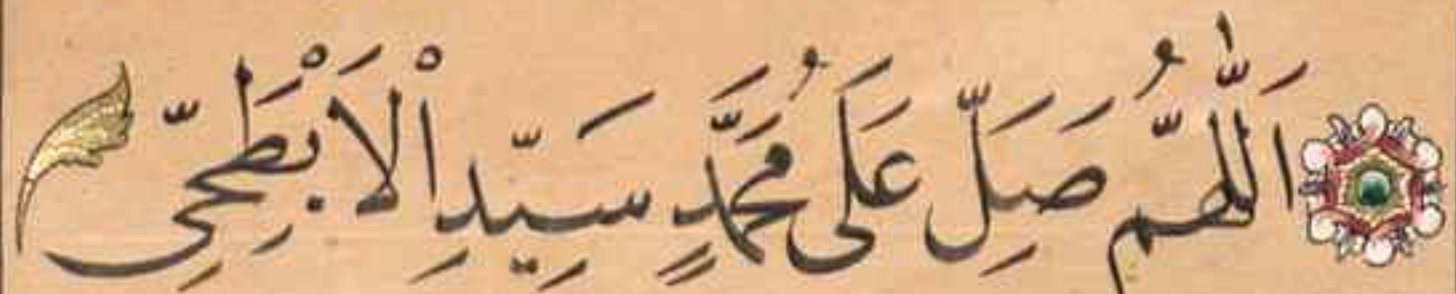 اَللّٰهُمَّ صَلِّ عَلَى مُحَمَّدٍ سَيِّدِ اْلاَبْطَحِيِّ